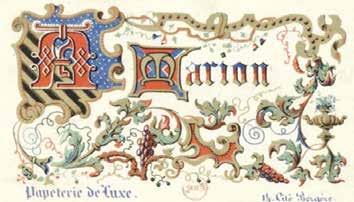 A Marion
Papeterie de Luxe.
14. Cité Bergère.